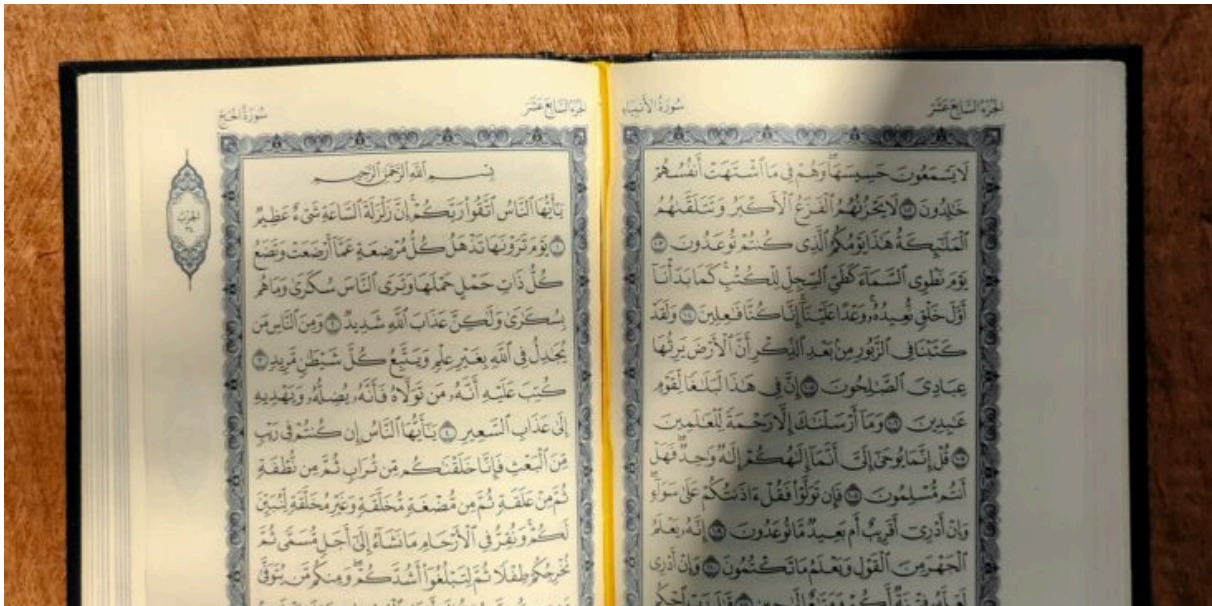 الجزء السابع عشر
سورة الأنبياء
لَا يَسْمَعُونَ حَسِيسَهَا ۖ وَهُمْ فِي مَا ٱشْتَهَتْ أَنفُسُهُمْ
خَٰلِدُونَ ١٠٢ لَا يَحْزُنُهُمُ ٱلْفَزَعُ ٱلْأَكْبَرُ وَتَتَلَقَّىٰهُمُ
ٱلْمَلَٰٓئِكَةُ هَٰذَا يَوْمُكُمُ ٱلَّذِي كُنتُمْ تُوعَدُونَ ١٠٣
يَوْمَ نَطْوِي ٱلسَّمَآءَ كَطَيِّ ٱلسِّجِلِّ لِلْكُتُبِ ۚ كَمَا بَدَأْنَآ
أَوَّلَ خَلْقٍ نُّعِيدُهُۥ ۚ وَعْدًا عَلَيْنَآ ۚ إِنَّا كُنَّا فَٰعِلِينَ ١٠٤ وَلَقَدْ
كَتَبْنَا فِي ٱلزَّبُورِ مِنۢ بَعْدِ ٱلذِّكْرِ أَنَّ ٱلْأَرْضَ يَرِثُهَا
عِبَادِيَ ٱلصَّٰلِحُونَ ١٠٥ إِنَّ فِي هَٰذَا لَبَلَٰغًا لِّقَوْمٍ
عَٰبِدِينَ ١٠٦ وَمَآ أَرْسَلْنَٰكَ إِلَّا رَحْمَةً لِّلْعَٰلَمِينَ
١٠٧ قُلْ إِنَّمَا يُوحَىٰٓ إِلَيَّ أَنَّمَآ إِلَٰهُكُمْ إِلَٰهٌ وَٰحِدٌ ۖ فَهَلْ
أَنتُم مُّسْلِمُونَ ١٠٨ فَإِن تَوَلَّوْا۟ فَقُلْ ءَاذَنتُكُمْ عَلَىٰ سَوَآءٍ ۖ
وَإِنْ أَدْرِيٓ أَقَرِيبٌ أَم بَعِيدٌ مَّا تُوعَدُونَ ١٠٩ إِنَّهُۥ يَعْلَمُ
ٱلْجَهْرَ مِنَ ٱلْقَوْلِ وَيَعْلَمُ مَا تَكْتُمُونَ ١١٠ وَإِنْ أَدْرِي
لَعَلَّهُۥ فِتْنَةٌ لَّكُمْ وَمَتَٰعٌ إِلَىٰ حِينٍ ١١١ قَٰلَ رَبِّ ٱحْكُم
الجزء السابع عشر
سورة الحج
الحزب
٣٤
بِسْمِ ٱللَّهِ ٱلرَّحْمَٰنِ ٱلرَّحِيمِ
يَٰٓأَيُّهَا ٱلنَّاسُ ٱتَّقُوا۟ رَبَّكُمْ ۚ إِنَّ زَلْزَلَةَ ٱلسَّاعَةِ شَيْءٌ عَظِيمٌ
١ يَوْمَ تَرَوْنَهَا تَذْهَلُ كُلُّ مُرْضِعَةٍ عَمَّآ أَرْضَعَتْ وَتَضَعُ
كُلُّ ذَاتِ حَمْلٍ حَمْلَهَا وَتَرَى ٱلنَّاسَ سُكَٰرَىٰ وَمَا هُم
بِسُكَٰرَىٰ وَلَٰكِنَّ عَذَابَ ٱللَّهِ شَدِيدٌ ٢ وَمِنَ ٱلنَّاسِ مَن
يُجَٰدِلُ فِي ٱللَّهِ بِغَيْرِ عِلْمٍ وَيَتَّبِعُ كُلَّ شَيْطَٰنٍ مَّرِيدٍ ٣
كُتِبَ عَلَيْهِ أَنَّهُۥ مَن تَوَلَّاهُ فَأَنَّهُۥ يُضِلُّهُۥ وَيَهْدِيهِ
إِلَىٰ عَذَابِ ٱلسَّعِيرِ ٤ يَٰٓأَيُّهَا ٱلنَّاسُ إِن كُنتُمْ فِي رَيْبٍ
مِّنَ ٱلْبَعْثِ فَإِنَّا خَلَقْنَٰكُم مِّن تُرَابٍ ثُمَّ مِن نُّطْفَةٍ
ثُمَّ مِنْ عَلَقَةٍ ثُمَّ مِن مُّضْغَةٍ مُّخَلَّقَةٍ وَغَيْرِ مُخَلَّقَةٍ لِّنُبَيِّنَ
لَكُمْ ۚ وَنُقِرُّ فِي ٱلْأَرْحَامِ مَا نَشَآءُ إِلَىٰٓ أَجَلٍ مُّسَمًّى ثُمَّ
نُخْرِجُكُمْ طِفْلًا ثُمَّ لِتَبْلُغُوٓا۟ أَشُدَّكُمْ ۖ وَمِنكُم مَّن يُتَوَفَّىٰ